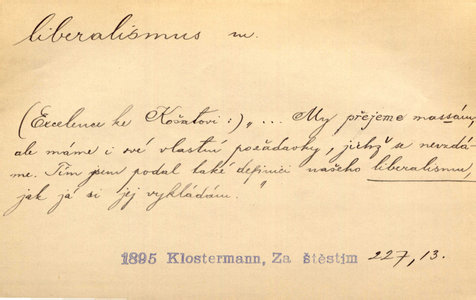 liberalismus m.
(Excelence ke Košatovi:) „... My přejeme massám,
ale máme i své vlastní požadavky, jichž se nevzdá-
me. Tím jsem podal také definici našeho liberalismu,
jak já si jej vykládám."
1895 Klostermann, Za štěstím 227, 13.